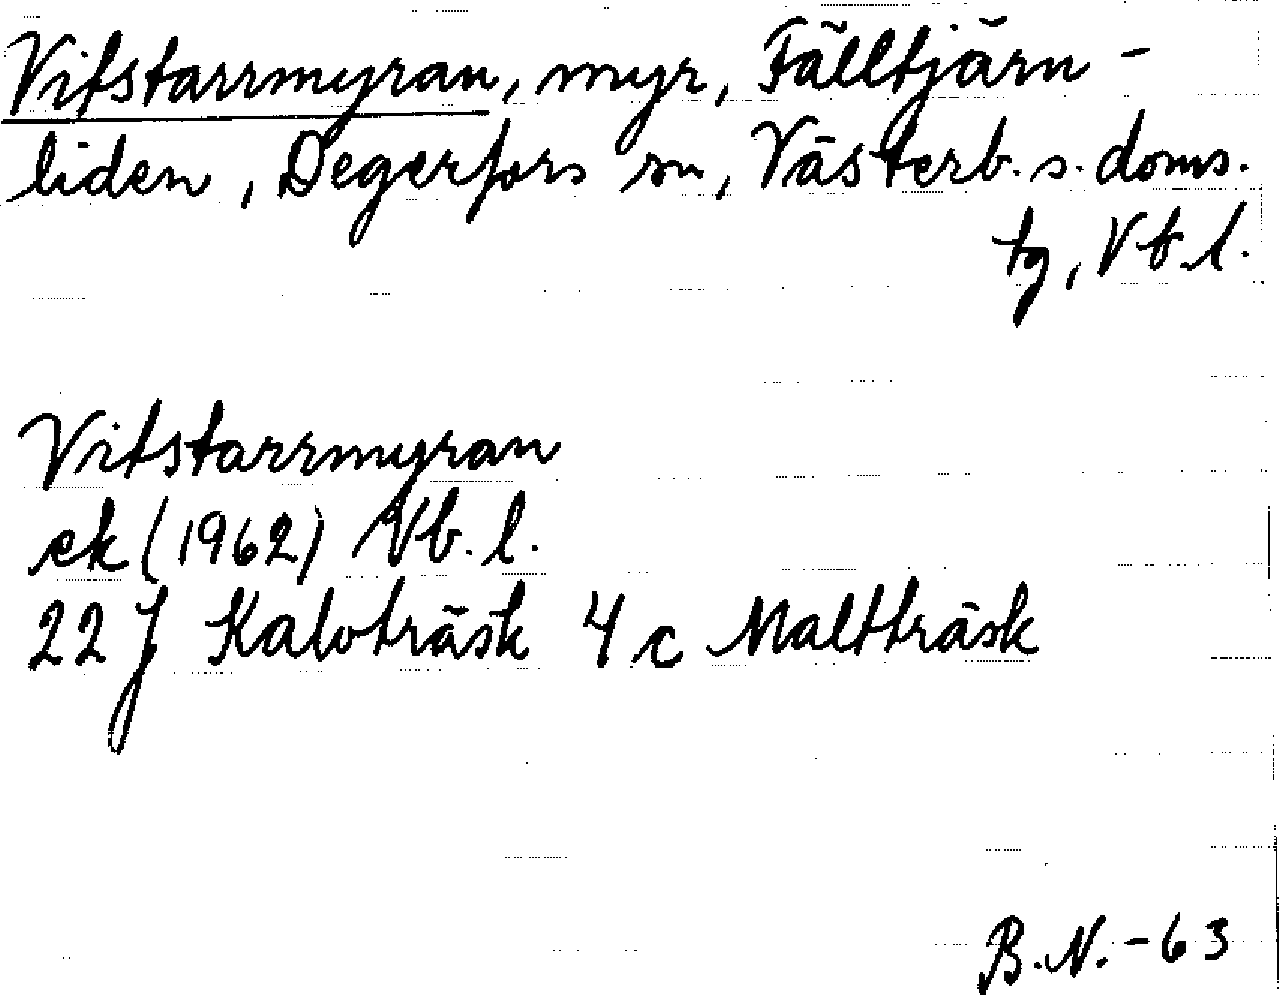 Vitstarrmyran, myr, Fälltjärn-
liden, Degerfors sn, Västerb. s. doms.
tg, Vb.l.
Vitstarrmyran
ek (1962) Vb. l.
22 J Kalvträsk 4 c Maltträsk
B.N.-63